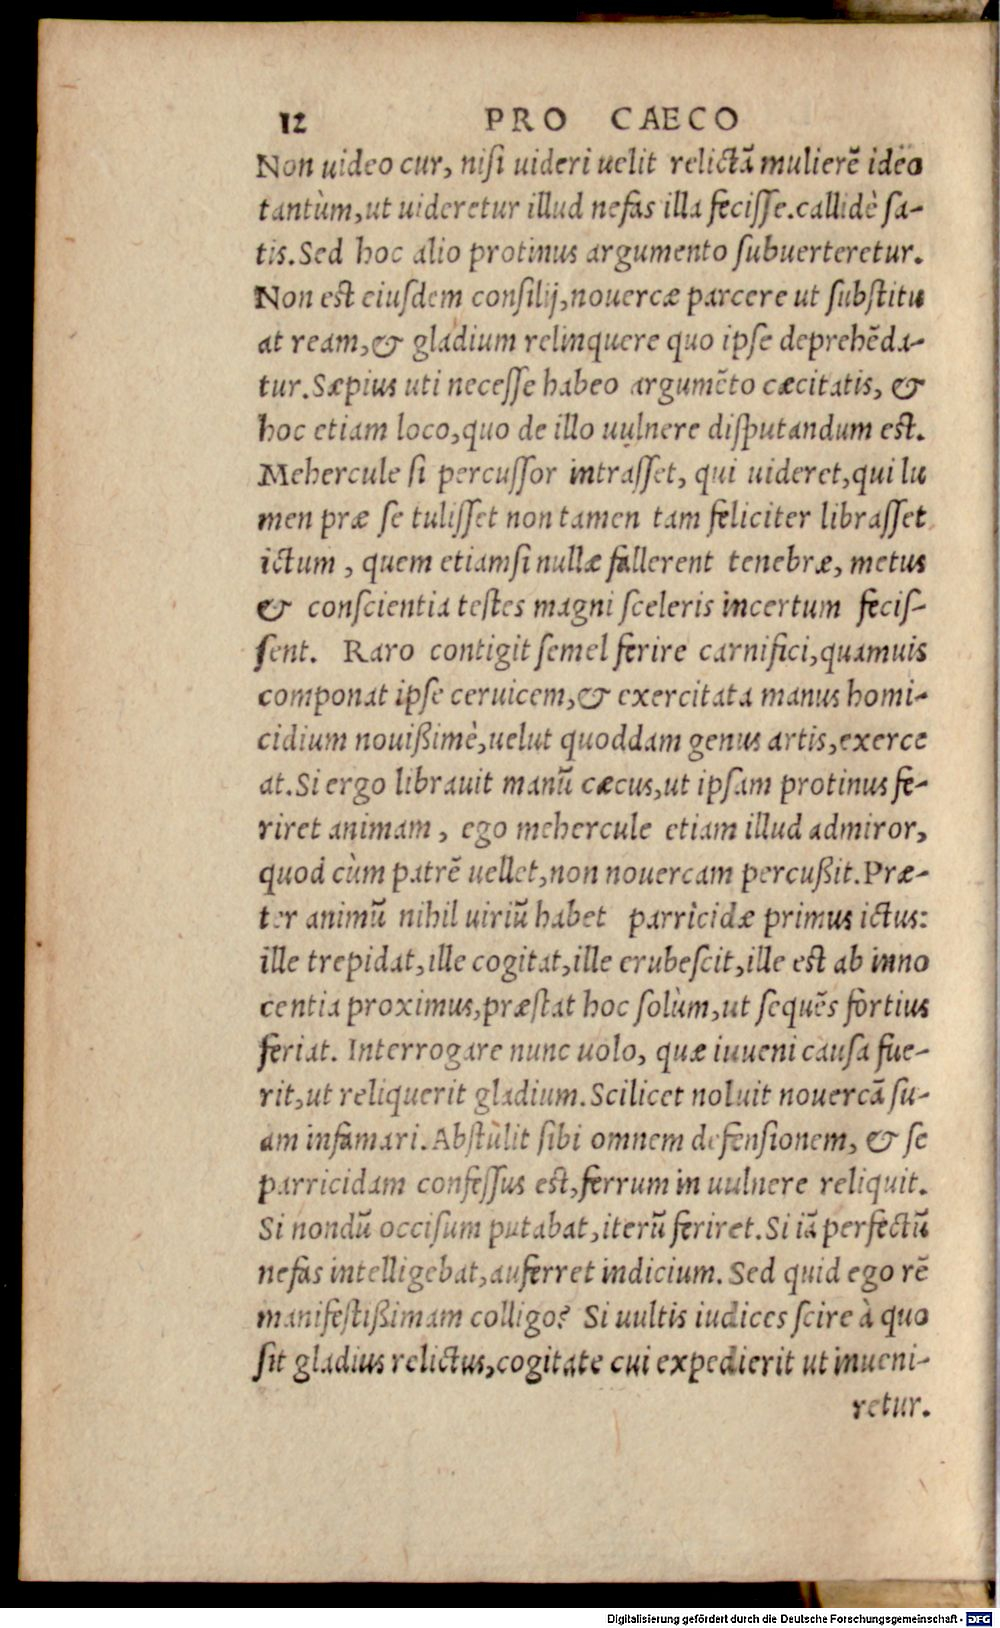 12 PRO CAECO
Non uideo cur, niſi uideri uelit relictā mulierē ideo
tantùm, ut uideretur illud nefas illa feciſſe. callidè ſa-
tis. Sed hoc alio protinus argumento ſubuerteretur.
Non est eiuſdem conſilij, nouercæ parcere ut ſubſtitu
at ream, & gladium relinquere quo ipſe deprehēda-
tur. Sæpius uti neceſſe habeo argumēto cæcitatis, &
hoc etiam loco, quo de illo uulnere diſputandum est.
Mehercule ſi percuſſor intraſſet, qui uideret, qui lu
men præ ſe tuliſſet non tamen tam feliciter libraſſet
ictum, quem etiamſi nullæ fallerent tenebræ, metus
& conſcientia teſtes magni ſceleris incertum feciſ-
ſent. Raro contigit ſemel ferire carnifici, quamuis
componat ipſe ceruicem, & exercitata manus homi-
cidium nouißimè, uelut quoddam genus artis, exerce
at. Si ergo librauit manū cæcus, ut ipſam protinus fe-
riret animam, ego mehercule etiam illud admiror,
quod cùm patrē uellet, non nouercam percußit. Præ-
ter animū nihil uiriū habet parricidæ primus ictus:
ille trepidat, ille cogitat, ille erubeſcit, ille est ab inno
centia proximus, præſtat hoc ſolùm, ut ſequēs fortius
feriat. Interrogare nunc uolo, quæ iuueni cauſa fue-
rit, ut reliquerit gladium. Scilicet noluit nouercā ſu-
am infamari. Abſtulit ſibi omnem defenſionem, & ſe
parricidam confeſſus est, ferrum in uulnere reliquit.
Si nondū occiſum putabat, iterū feriret. Si iā perfectū
nefas intelligebat, auferret indicium. Sed quid ego rē
manifeſtißimam colligo? Si uultis iudices ſcire à quo
ſit gladius relictus, cogitate cui expedierit ut inueni-
retur.
Digitalisierung gefördert durch die Deutsche Forschungsgemeinschaft - DFG